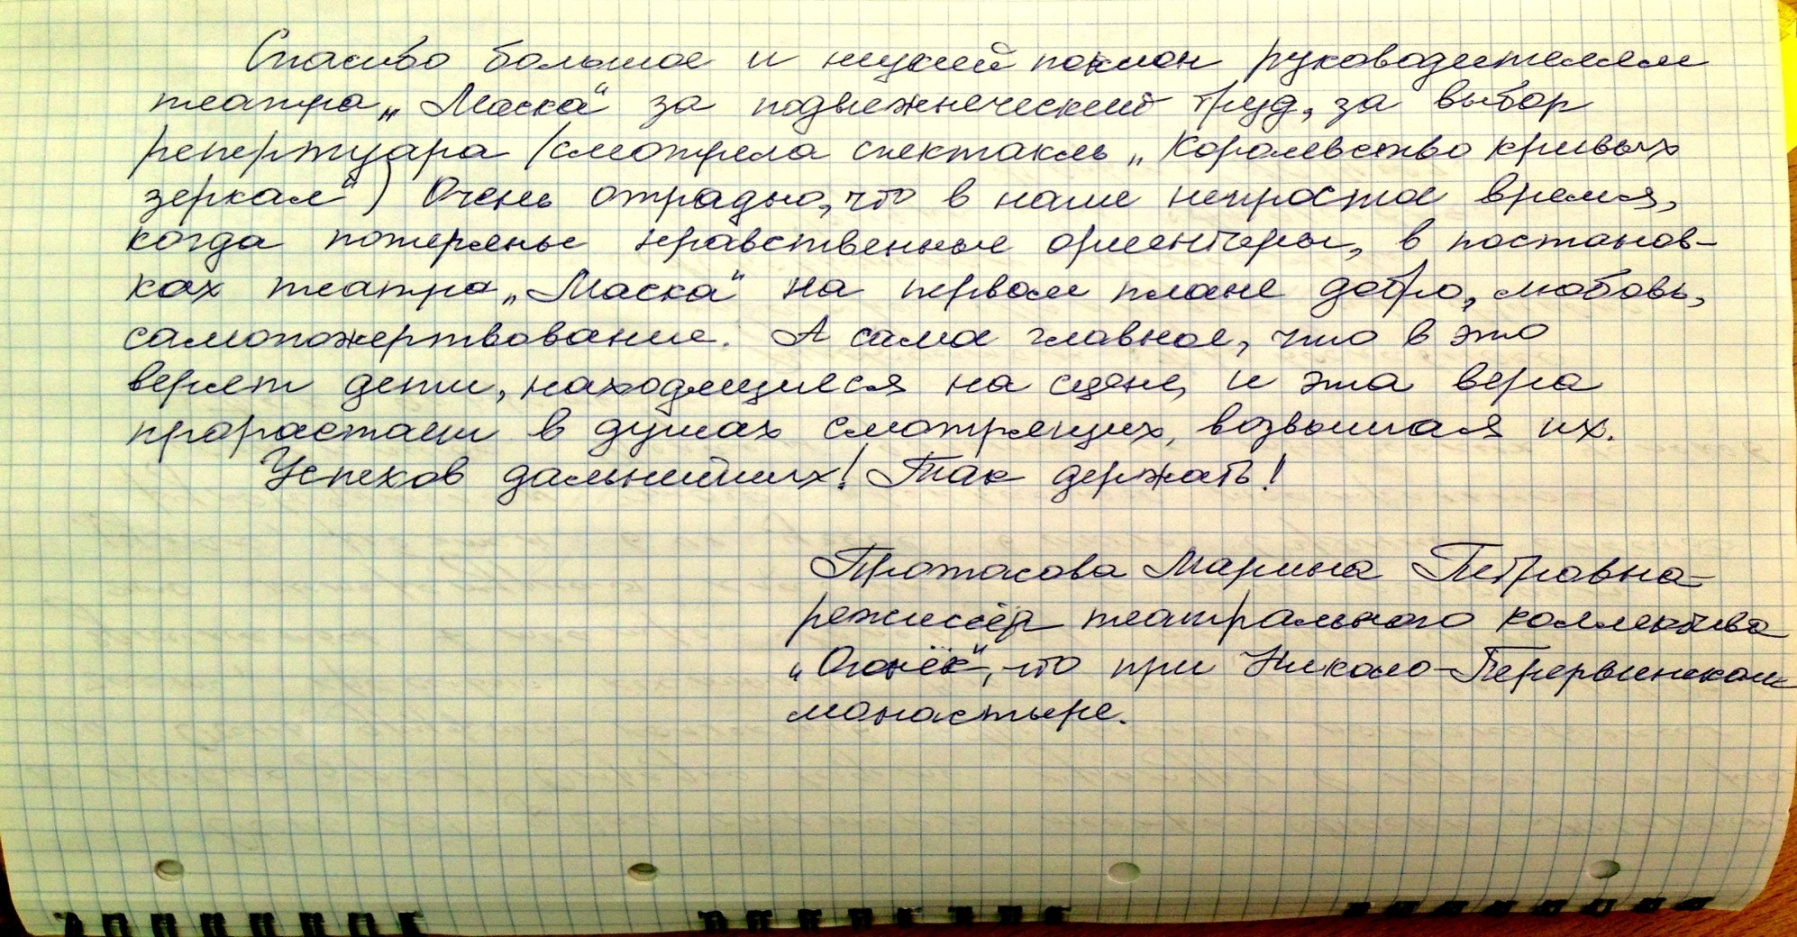 Спасибо большое и низкий поклон руководителям
театра „Маска“ за подвижнический труд, за выбор
репертуара (смотрела спектакль „Королевство кривых
зеркал“) Очень отрадно, что в наше непростое время,
когда потеряны нравственные ориентиры, в постанов-
ках театра „Маска“ на первом плане добро, любовь,
самопожертвование. А самое главное, что в это
верят дети, находящиеся на сцене, и эта вера
прорастает в душах смотрящих, возвышая их.
Успехов дальнейших! Так держать!
Протасова Марина Петровна –
режиссёр театрального коллектива
„Огонёк“, что при Николо-Перервинском
монастыре.